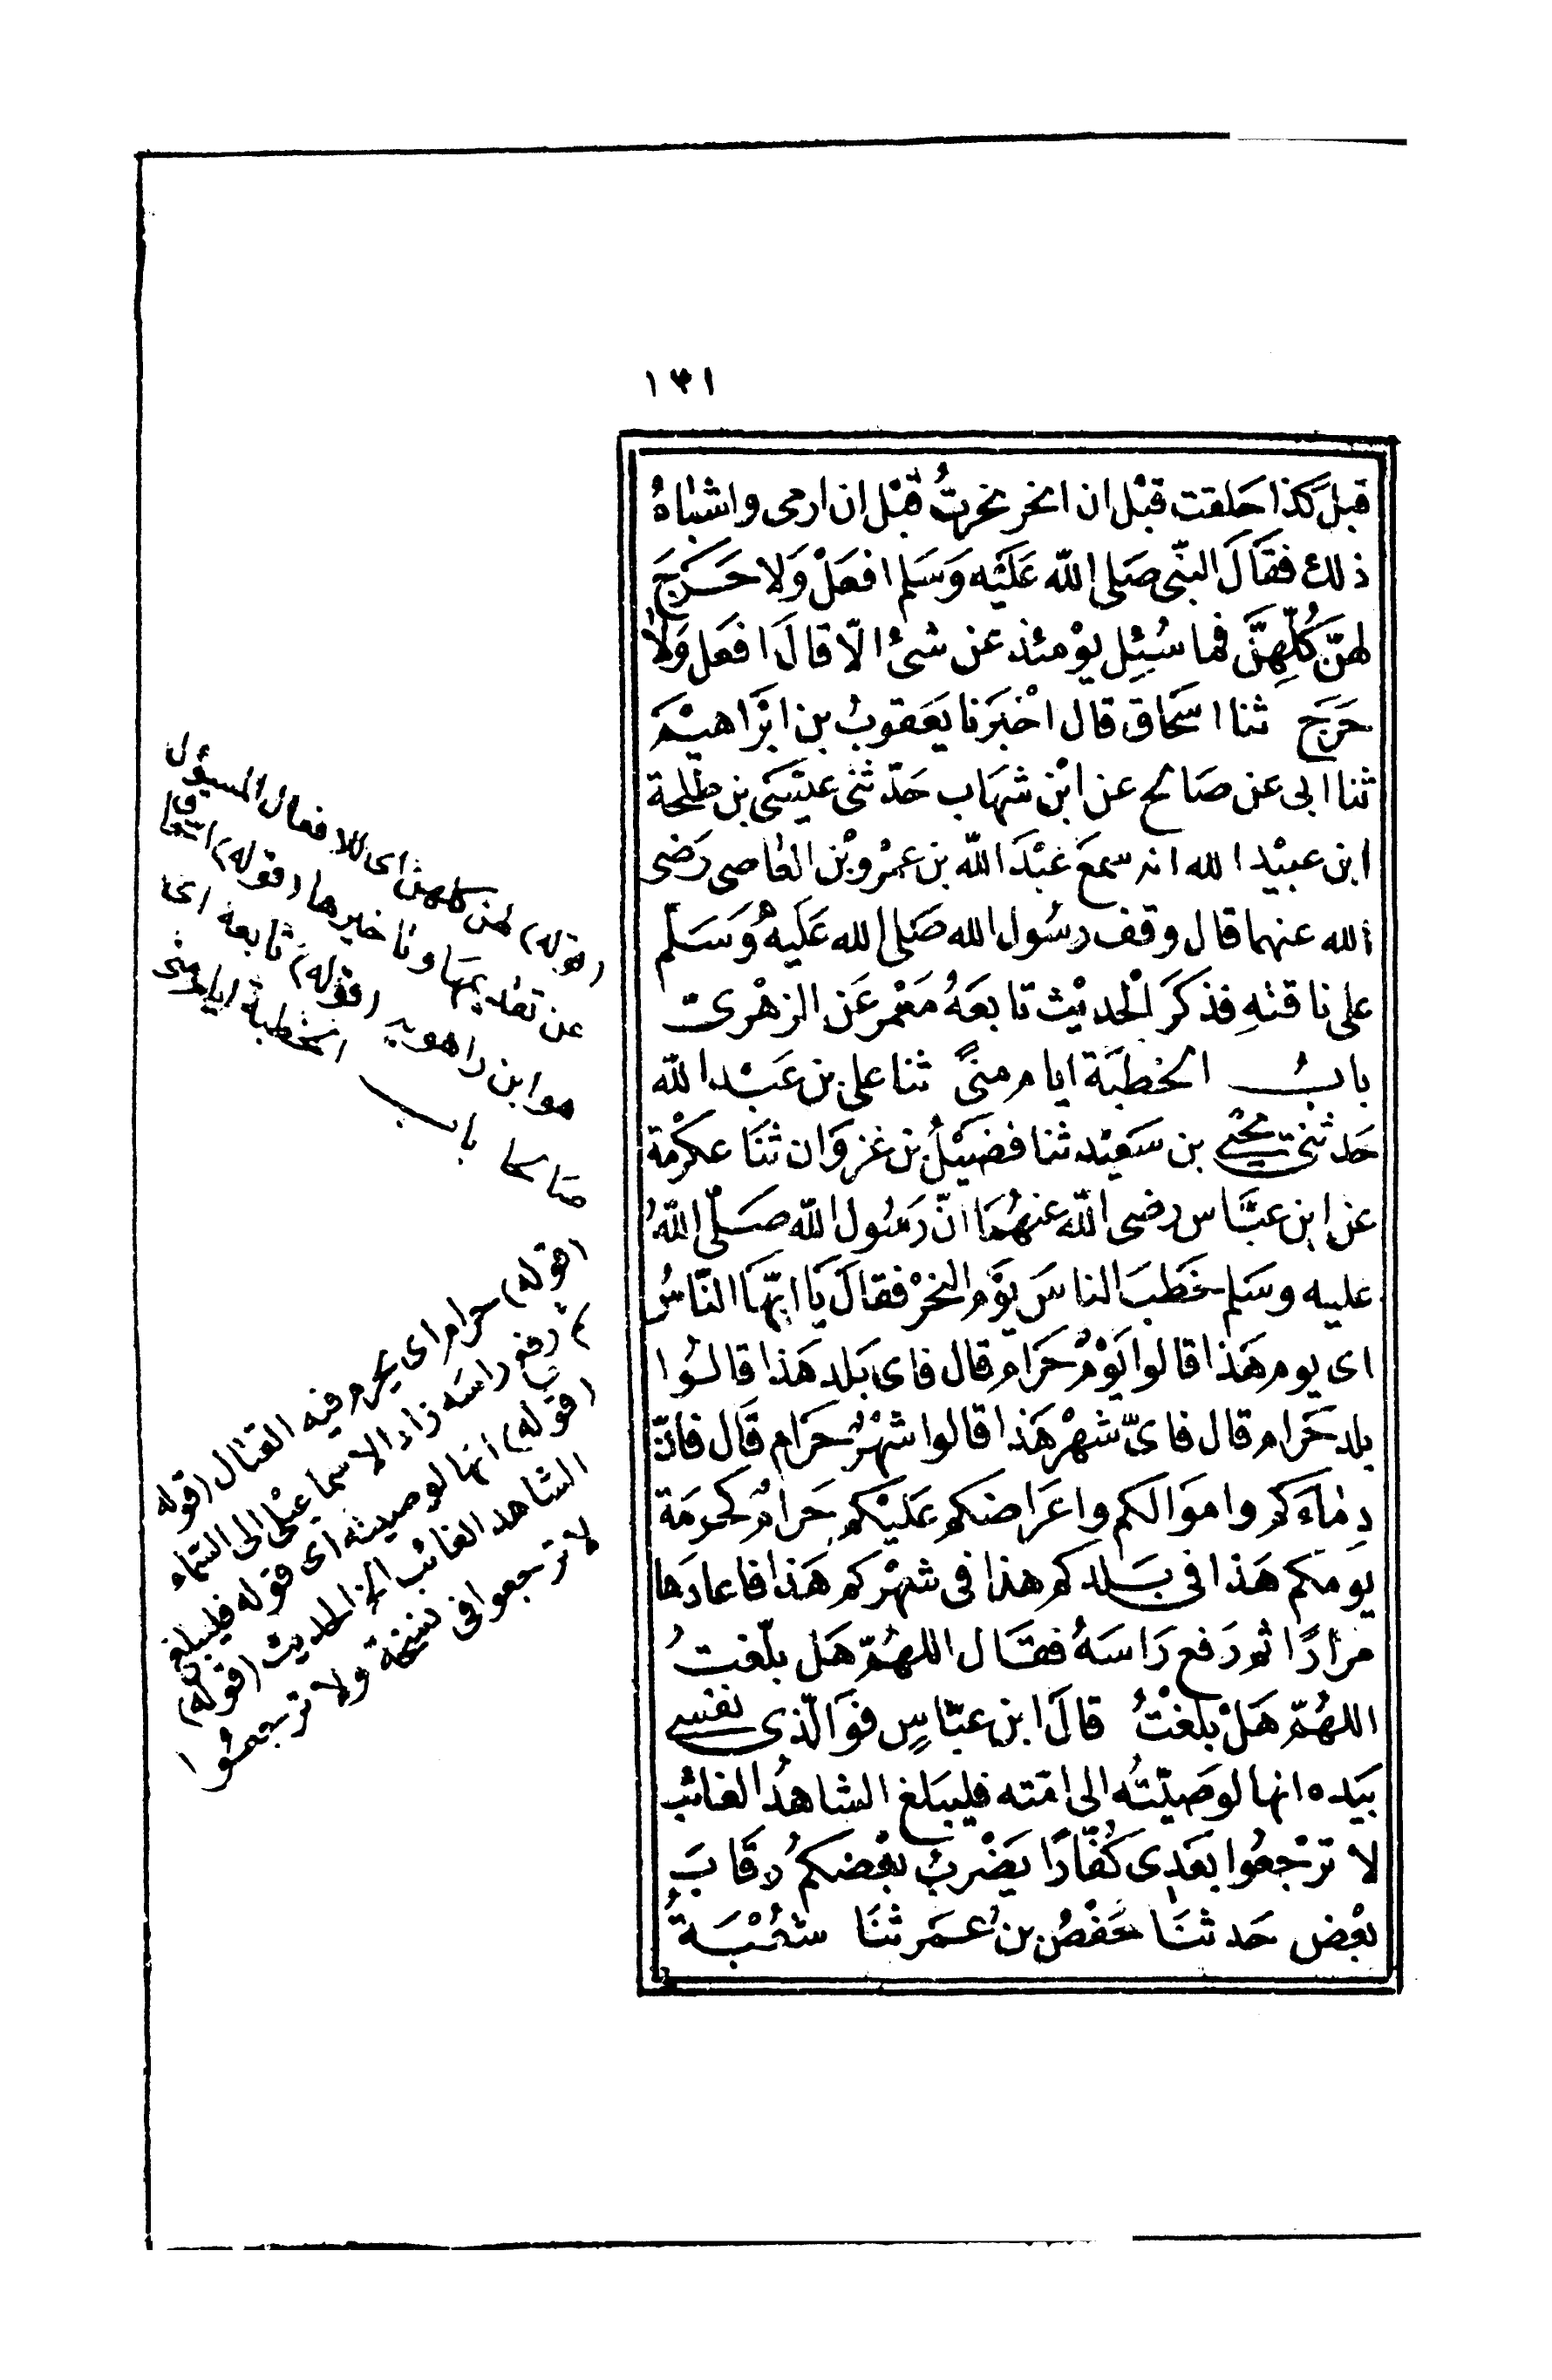 ١٣١
قبل كذا حلقت قبل ان انحر نحرت قبل ان ارمى واشباه
ذلك فقال النبى صلى الله عليه وسلم افعل ولا حرج
لهن كلهن فما سئل يومئذ عن شئ الا قال افعل ولا
حرج ثنا اسحاق قال اخبرنا يعقوب بن ابراهيم
ثنا ابى عن صالح عن ابن شهاب حدثنى عيسى بن طلحة
ابن عبيد الله انه سمع عبد الله بن عمرو بن العاصى رضى
الله عنهما قال وقف رسول الله صلى الله عليه وسلم
على ناقته فذكر الحديث تابعه معمر عن الزهرى
باب الخطبة ايام منى ثنا على بن عبد الله
حدثنى يحيى بن سعيد ثنا فضيل بن غزوان ثنا عكرمة
عن ابن عباس رضى الله عنهما ان رسول الله صلى الله
عليه وسلم خطب الناس يوم النحر فقال يا ايها الناس
اى يوم هذا قالوا يوم حرام قال فاى بلد هذا قالوا
بلد حرام قال فاى شهر هذا قالوا شهر حرام قال فان
دماءكم واموالكم واعراضكم عليكم حرام كحرمة
يومكم هذا فى بلدكم هذا فى شهركم هذا فاعادها
مرارا ثم رفع راسه فقال اللهم هل بلغت
اللهم هل بلغت قال ابن عباس فوالذى نفسى
بيده انها لوصيته الى امته فليبلغ الشاهد الغائب
لا ترجعوا بعدى كفارا يضرب بعضكم رقاب
بعض حدثنا حفص بن عمر ثنا شعبة
(قوله) لهن كلهن اى للافعال المسؤل
عن تقديمها وتاخيرها (قوله) اسحاق
هو ابن راهويه (قوله) تابعه اى
صالحا باب الخطبة ايام منى
(قوله) حرام اى يحرم فيه القتال (قوله
ثم رفع راسه زاد الاسماعيلى الى السماء
(قوله) انها لوصيته اى قوله فليبلغ
الشاهد الغائب الخ الحديث (قوله)
لا ترجعوا فى نسخة ولا ترجعوا